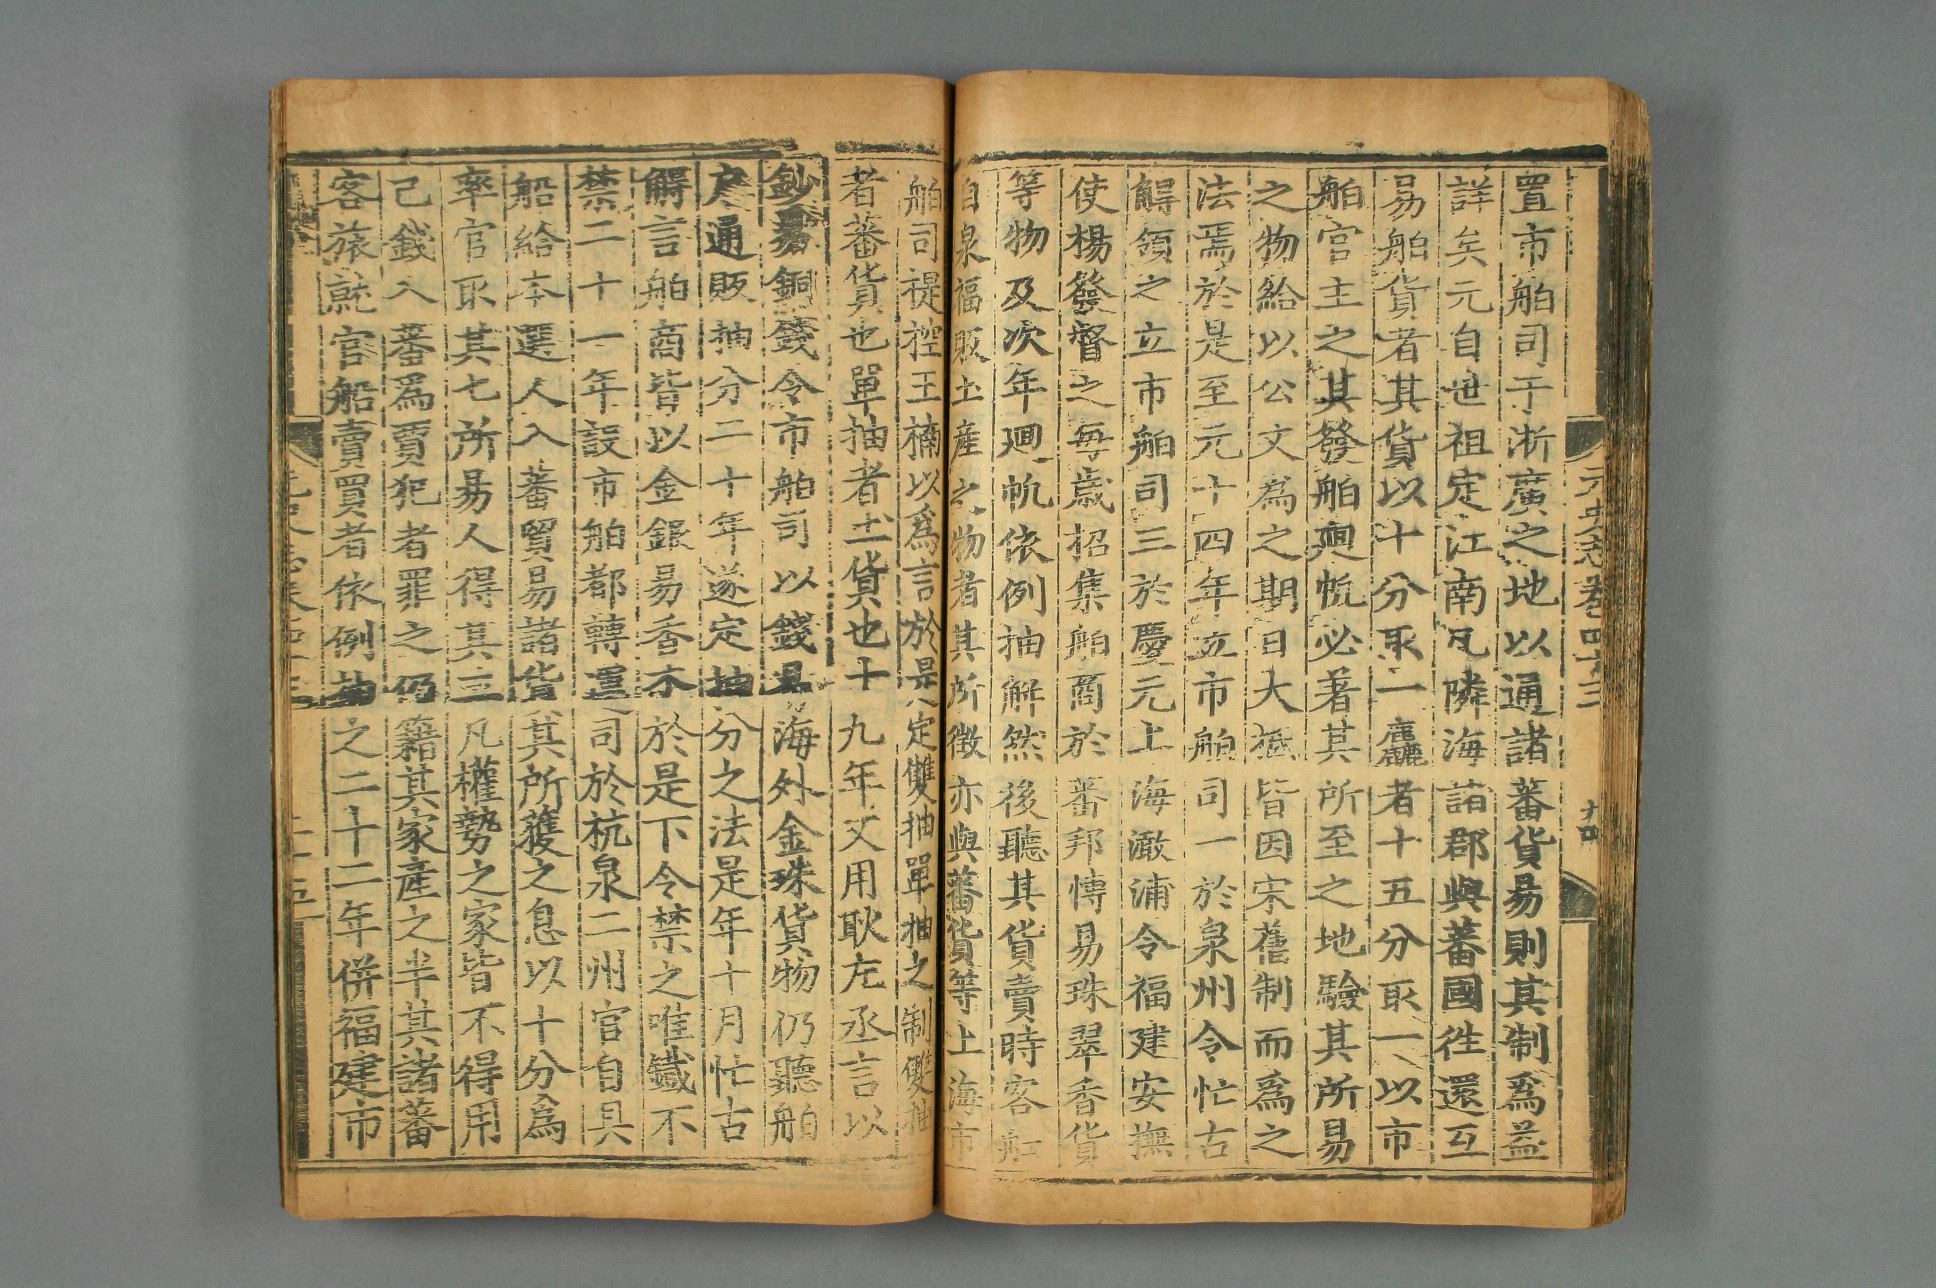 元史志卷四十三
十四
置市舶司于浙廣之地以通諸蕃貨易則其制爲益
詳矣元自世祖定江南凡隣海諸郡與蕃國徃還互
易舶貨者其貨以十分取一麤者十五分取一以市
舶官主之其發舶廻帆必著其所至之地驗其所易
之物給以公文爲之期日大抵皆因宋舊制而爲之
法焉於是至元十四年立市舶司一於泉州令忙古
䚟領之立市舶司三於慶元上海澉浦令福建安撫
使楊發督之每歲招集舶商於蕃邦愽易珠翠香貨
等物及次年廻帆依例抽解然後聽其貨賣時客舡
自泉福販土産之物者其所徵亦與蕃貨等上海市
舶司提控王楠以爲言於是定雙抽單抽之制雙抽
者蕃貨也單抽者土貨也十九年又用耿左丞言以
鈔易銅錢令市舶司以錢易海外金珠貨物仍聽舶
户通販抽分二十年遂定抽分之法是年十月忙古
䚟言舶商皆以金銀易香木於是下令禁之唯鐵不
禁二十一年設市舶都轉運司於杭泉二州官自具
船給本選人入蕃貿易諸貨其所獲之息以十分爲
率官取其七所易人得其三凡權勢之家皆不得用
己錢入蕃爲賈犯者罪之仍籍其家産之半其諸蕃
客旅就官船賣買者依例抽之二十二年併福建市